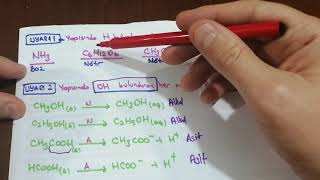 UYARI 1 Yapısında H bulunduran
NH₃ C₆H₁₂O₆ CH₃
Baz Nötr Nötr
UYARI 2 Yapısında OH bulunduran her
CH₃OH(s) →N CH₃OH(aq) Alkol
C₂H₅OH(s) →N C₂H₅OH(aq) Alkol
CH₃COOH(s) →A CH₃COO⁻ + H⁺ Asit
HCOOH(s) →A HCOO⁻ + H⁺ Asit